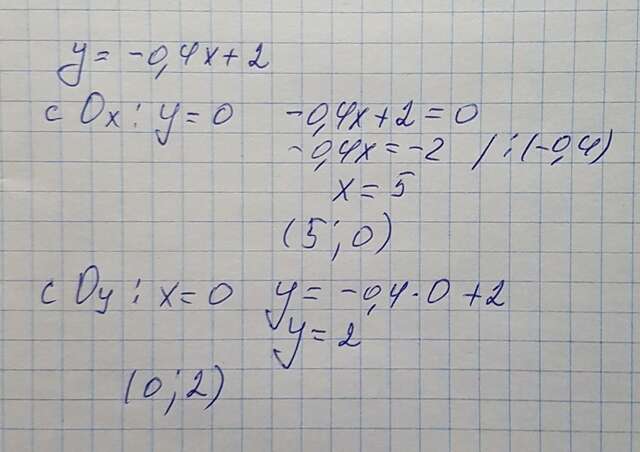 y = -0,4x + 2
с Ox: y = 0 -0,4x + 2 = 0
-0,4x = -2 / : (-0,4)
x = 5
(5; 0)
с Oy: x = 0 y = -0,4 · 0 + 2
y = 2
(0; 2)